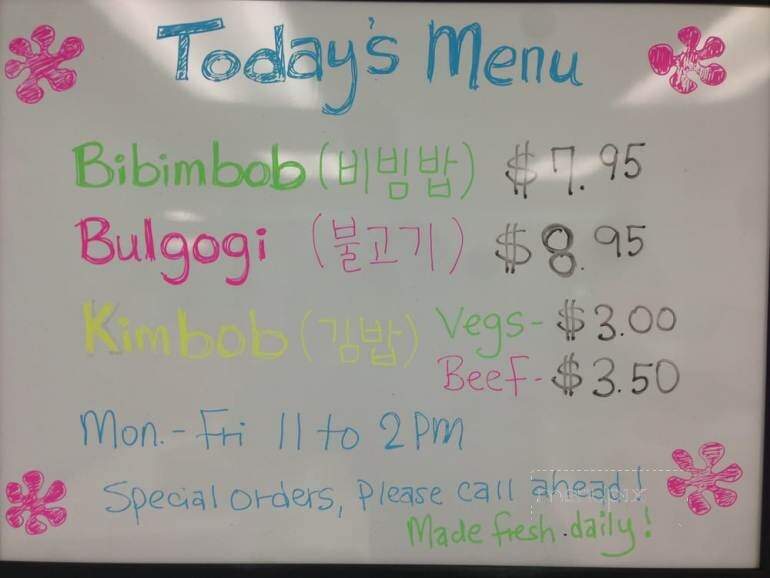 Today's Menu
Bibimbob (비빔밥) $7.95
Bulgogi (불고기) $8.95
Kimbob (김밥) Vegs- $3.00
Beef- $3.50
Mon.- Fri 11 to 2 PM
Special orders, Please call ahead!
Made fresh daily!